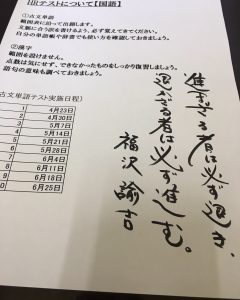 HRテストについて【国語】
①古文単語
範囲表に沿って出題します。
文脈に合う訳を書けるよう、必ず覚えてきてください。
自分の単語帳や辞書でも使い方を確認しておきましょう。
②漢字
範囲を設けません。
点数は気にせず、できなかったものをしっかり復習しましょう。
語句の意味も調べておきましょう。
古文単語テスト実施日程)
4月23日
4月30日
5月7日
5月14日
5月21日
5月28日
6月4日
6月11日
6月18日
6月25日
進まざる者は必ず退き、
退かざる者は必ず進む。
福沢諭吉